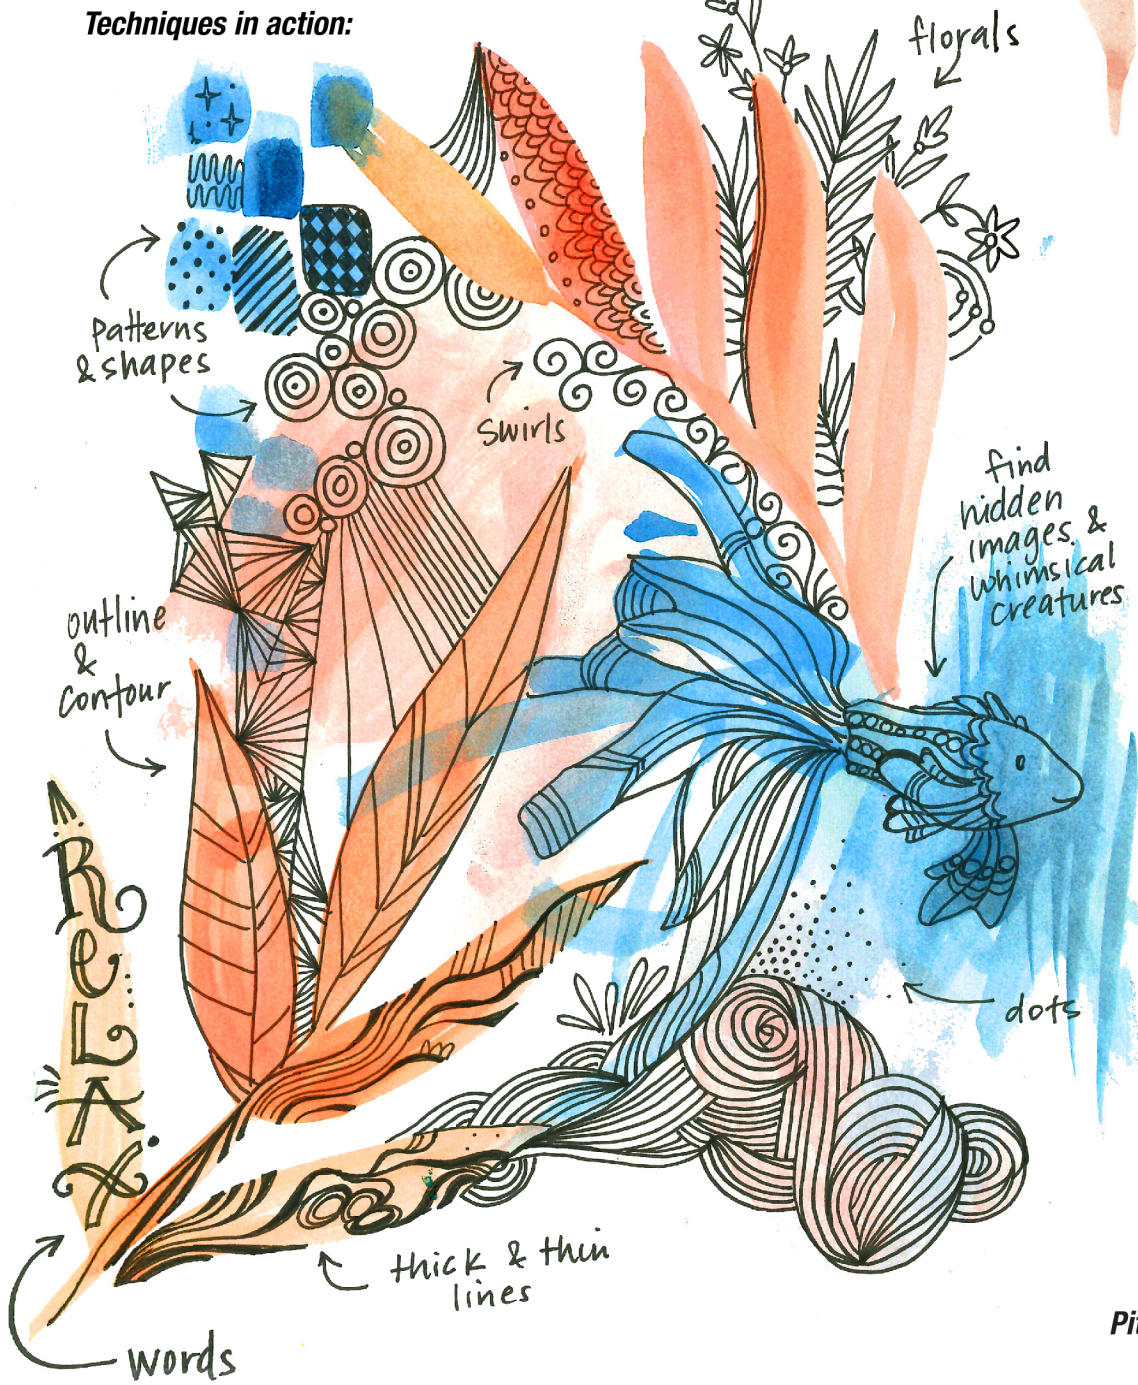 Techniques in action:
florals
patterns
& shapes
swirls
find
hidden
images &
whimsical
creatures
outline
&
contour
RELAX
dots
thick & thin
lines
words
Pit